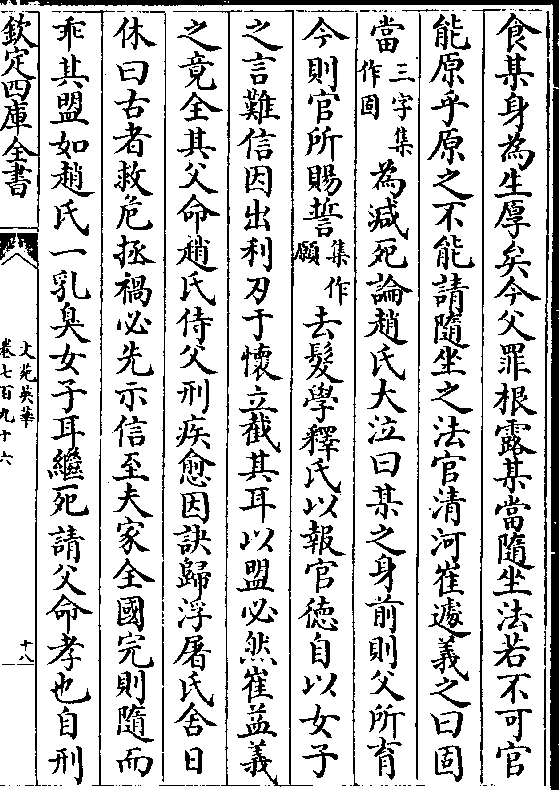 食某身為生厚矣今父罪根露某當隨坐法若不可官
能原乎原之不能請隨坐之法官清河崔遽義之曰固
當三字集作固為減死論趙氏大泣曰某之身前則父所育
今則官所賜誓集作願去髮學釋氏以報官徳自以女子
之言難信因出利刃于懷立截其耳以盟必然崔益義
之竟全其父命趙氏侍父刑疾愈因訣歸浮屠氏舍日
休曰古者救危拯禍必先示信至夫家全國完則隨而
乖其盟如趙氏一乳臭女子耳繼死請父命孝也自刑
欽定四庫全書
文苑英華
卷七百九十六
十八